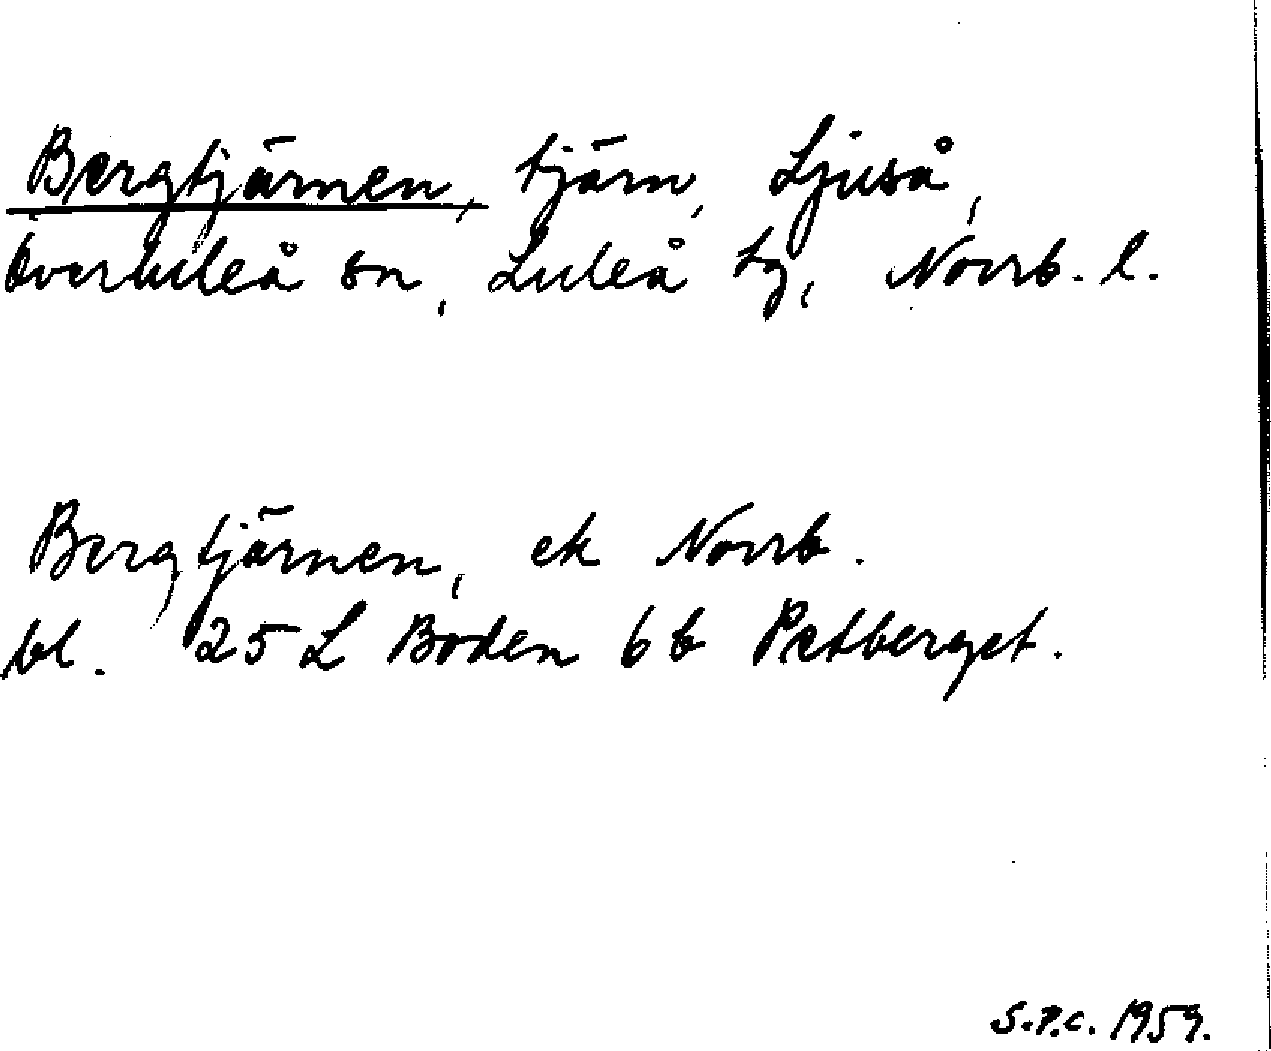 Bergtjärnen, tjärn, Ljuså,
Överluleå sn, Luleå tg, Norrb. l.
Bergtjärnen, ek Norrb.
bl. 25 L Boden 6 b Petberget.
S.P.C. 1959.